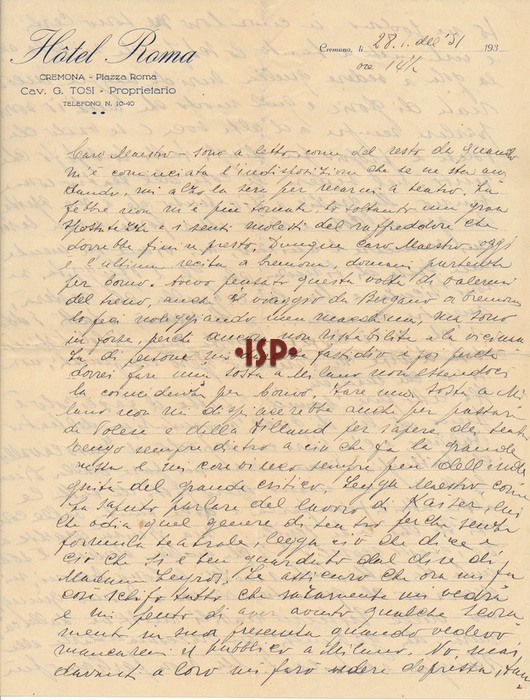 Hôtel Roma
CREMONA - Piazza Roma
Cav. G. TOSI - Proprietario
TELEFONO N. 10-40
Cremona, li 28.1. dell'31 193
ore 14½
Caro Maestro - sono a letto, come del resto da quando
m'è cominciata l'indisposizione che se ne sta an
dando, mi alzo la sera per recarmi a teatro. La
febbre non m'è più tornata, ho soltanto una gran
spossatezza e i senti molesti del raffreddore che
dovrebbe finire presto. Dunque caro Maestro oggi
è l'ultima recita a Cremona, domani partenza
per Como. Avevo pensato questa volta di valermi
del treno, anche il viaggio da Bergamo a Cremona
lo feci noleggiando una macchina, ma sono
in forse, perchè ancora non ristabilita e la vicinan
za di persone mi fastidio e poi perchè
dovrei fare una sosta a Milano non essendoci
la coincidenza per Como. Fare una sosta a Mi
lano non mi dispiacerebbe anche per
di e della per sapere dei teatri
Tengo sempre dietro a ciò che fa la grande
e mi convinco sempre più dell'
del grande critico. Legga Maestro come
ha saputo parlare del lavoro di Kaiser, lui
che odia quel genere di teatro perchè senza
formula teatrale, legga ciò che dice e
ciò che si è ben guardato dal dire di
Le assicuro che ora mi fa
così schifo tutto che raramente mi vedrà
e mi pento di aver avuto qualche scora
mento in sua presenza quando vedevo
mancarmi il pubblico a Milano. No, mai
davanti a loro mi farò vedere depressa,
ISP